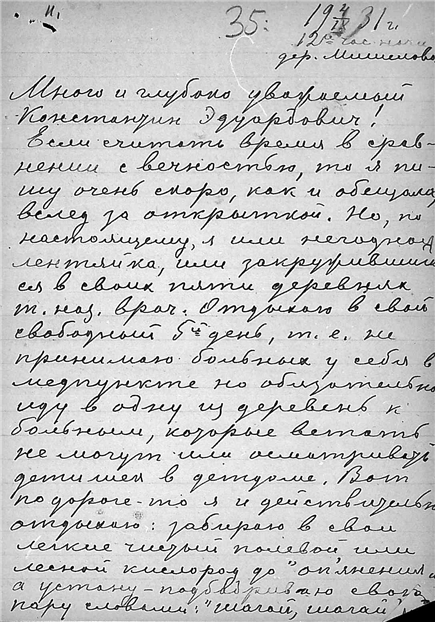 11.
35.
19 4/IX 31 г.
12й час ночи
дер. Мишелово
Много и глубоко уважаемый
Константин Эдуардович!
Если считать время в срав-
нении с вечностью, то я пи-
шу очень скоро, как и обещала,
вслед за открыткой. Но, по
настоящему, я или негодная
лентяйка, или закруживший
ся в своих пяти деревнях
т. наз. врач. Отдыхаю в свой
свободный 5ый день, т. е. не
принимаю больных у себя в
медпункте но обязательно
иду в одну из деревень к
больным, которые встать
не могут или осматривать
детишек в детдоме. Вот
по дороге-то я и действительно
отдыхаю: забираю в свои
легкие чистый полевой, или
лесной кислород до "оп'янения"
а устану – подбадриваю свою
пару словами: "шагай, шагай,